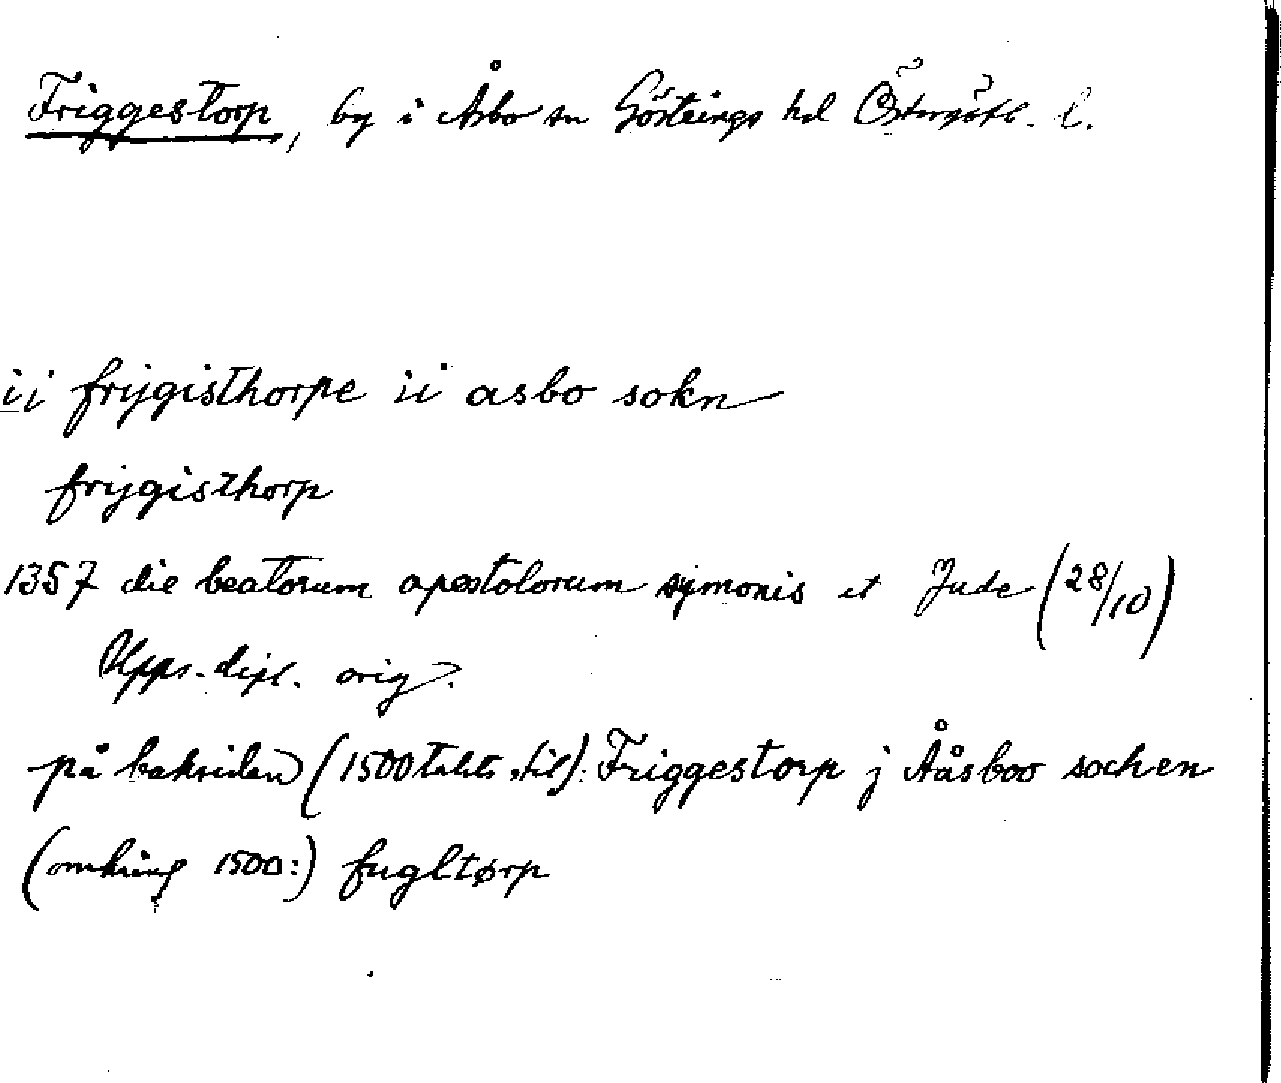 Friggestorp, by i Åsbo sn Göstrings hd Östergötl. l.
ii frijgisthorpe ii asbo sokn
frijgisthorp
1357 die beatorum apostolorum symonis et Jude (28/10)
Upps. dipl. orig.
på baksidan (1500talets stil): Friggestorp j Ååsboo sochen
(omkring 1500:) fugltørp